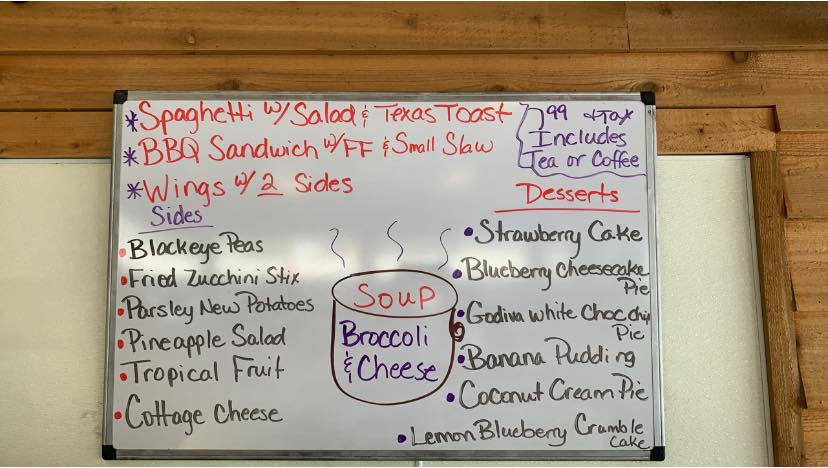 *Spaghetti w/ Salad & Texas Toast
*BBQ Sandwich w/ FF & Small Slaw
*Wings w/ 2 Sides
7 99 + Tax
Includes
Tea or Coffee
Sides
• Blackeye Peas
• Fried Zucchini Stix
• Parsley New Potatoes
• Pineapple Salad
• Tropical Fruit
• Cottage Cheese
Soup
Broccoli
& Cheese
Desserts
• Strawberry Cake
• Blueberry Cheesecake
Pie
• Godiva white Choc chip
Pie
• Banana Pudding
• Coconut Cream Pie
• Lemon Blueberry Crumble
cake